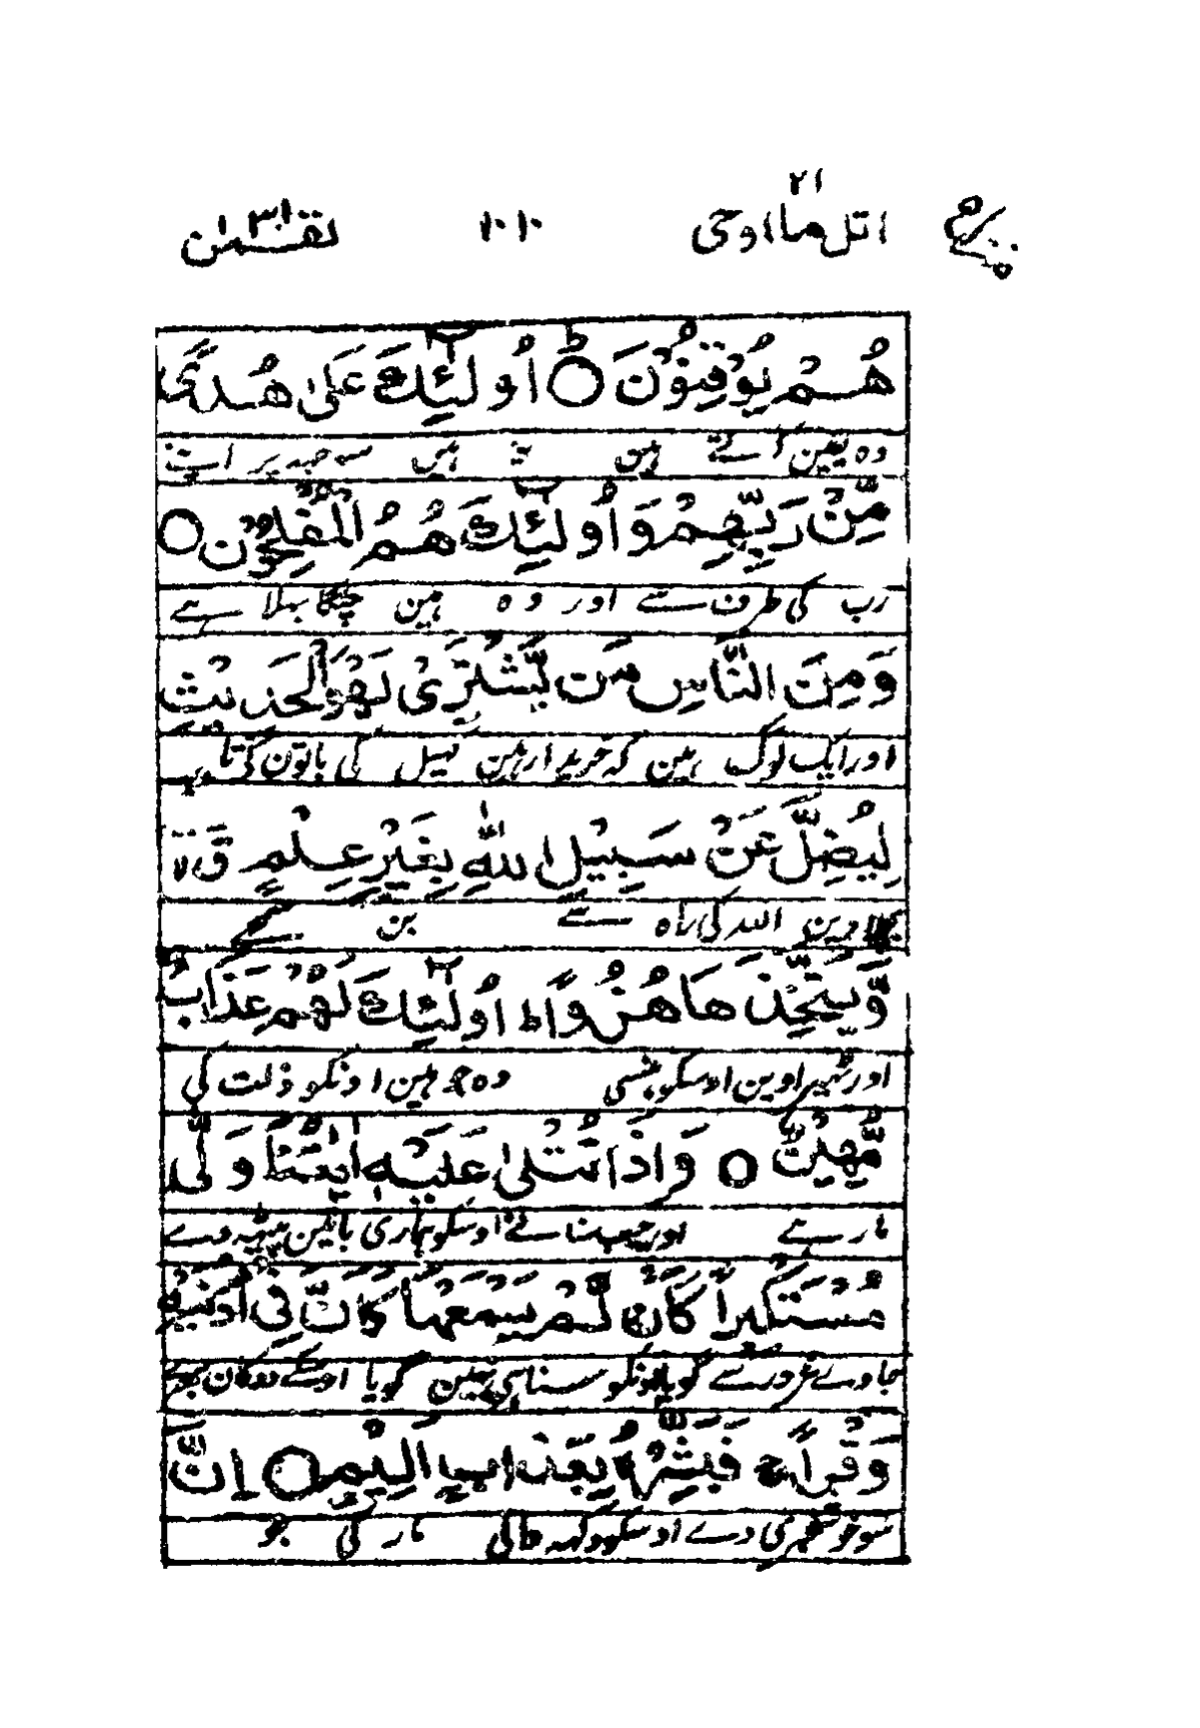 اتل ما اوحی ۲۱ ۱۰۱۰ لقمٰن ۳۱
هُمْ يُوْقِنُوْنَ ○ اُولٰٓئِكَ عَلٰى هُدًى
وہ یقین ہین یہ ہیں سوجہہ پر اپنے
مِّنْ رَّبِّهِمْ وَاُولٰٓئِكَ هُمُ الْمُفْلِحُوْنَ ○
رب کی طرف سے اور وہ ہین جنکا بہلا ہے
وَمِنَ النَّاسِ مَنْ يَّشْتَرِيْ لَهْوَ الْحَدِيْثِ
اور ایک لوگ ہین کہ خریدار ہین کہیل کی باتون کی تا
لِيُضِلَّ عَنْ سَبِيْلِ اللّٰهِ بِغَيْرِ عِلْمٍ ق
بچلاوین اللہ کی راہ سے بن سمجھے
وَّيَتَّخِذَهَا هُزُوًا ط اُولٰٓئِكَ لَهُمْ عَذَابٌ
اور ٹہیراوین اوسکو ہنسی وہ جو ہین اونکو ذلت کی
مُّهِيْنٌ ○ وَاِذَا تُتْلٰى عَلَيْهِ اٰيٰتُنَا وَلّٰى
مار ہے اور جب سنائے اوسکو ہماری باتین پیٹہہ دے
مُسْتَكْبِرًا كَاَنْ لَّمْ يَسْمَعْهَا كَاَنَّ فِيْ اُذُنَيْهِ
جاوے غرور سے گویا اونکو سنا ہی نہین گویا اوسکے دو کان بہرے
وَقْرًا ج فَبَشِّرْهُ بِعَذَابٍ اَلِيْمٍ ○ اِنَّ
سو خوشخبری دے اوسکو دکہہ والی مار کی جو